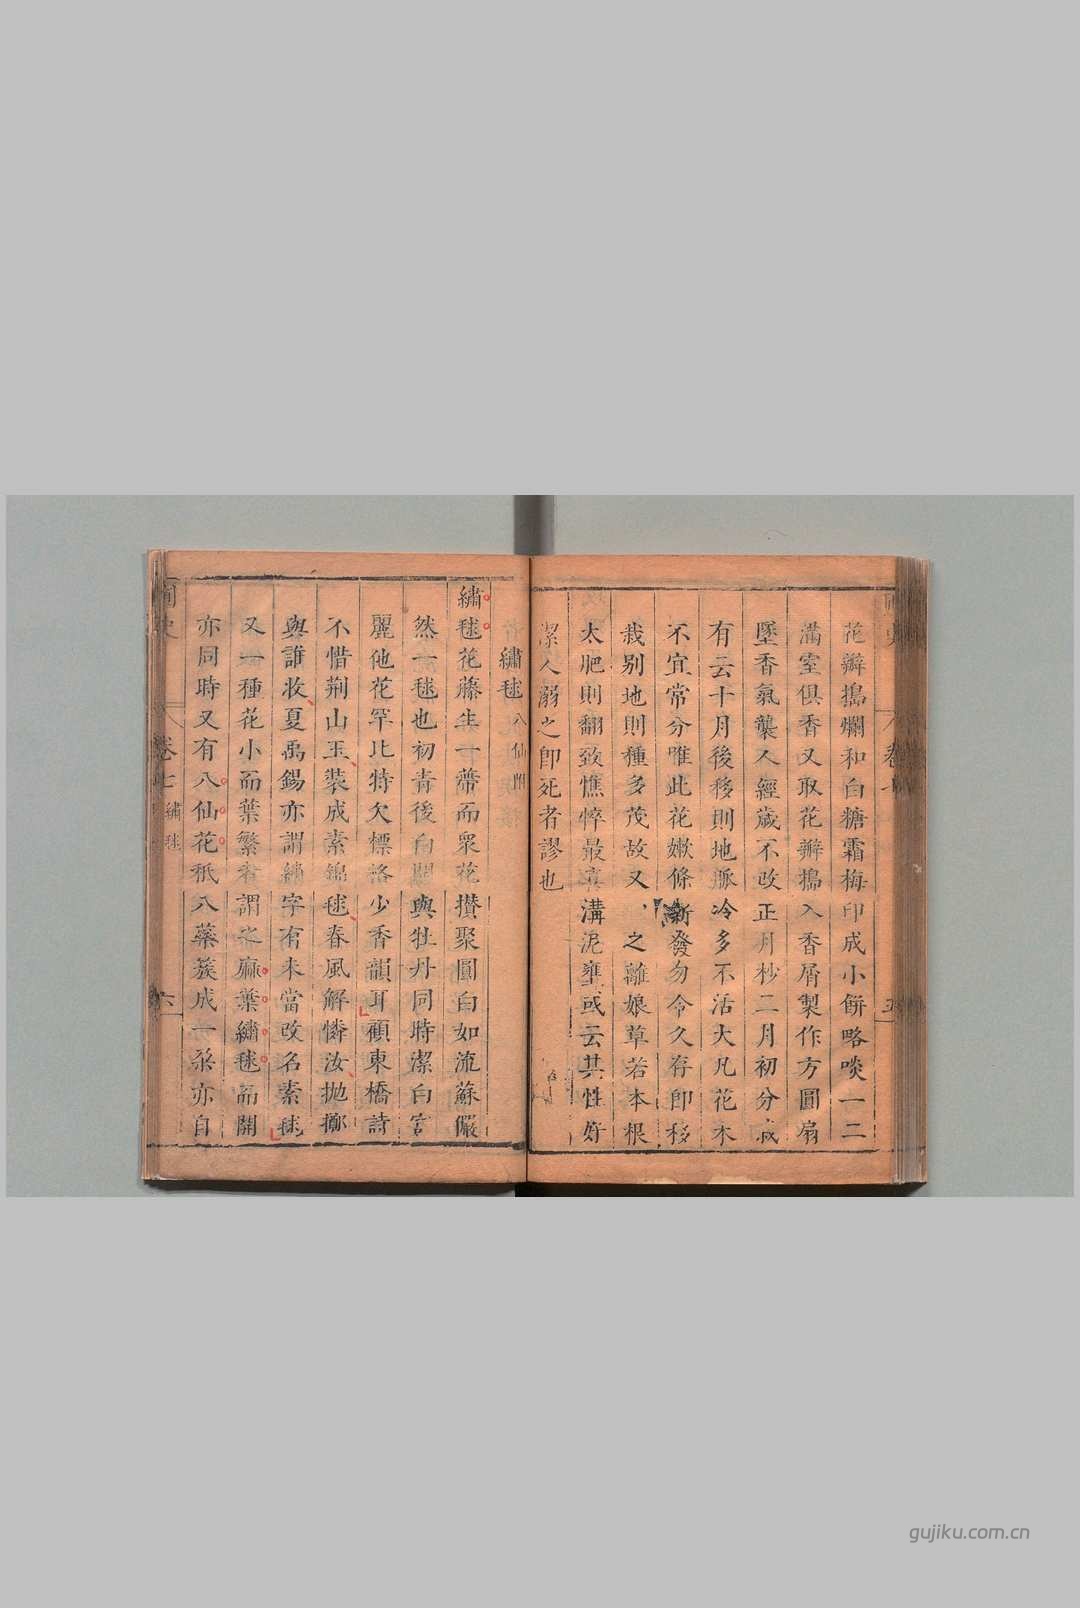 花瓣搗爛和白糖霜梅印成小餅略啖一二
滿室俱香又取花瓣搗入香屑製作方圓扇
墜香氣襲人經歲不改正月杪二月初分栽
有云十月後移則地脈冷多不活大凡花木
不宜常分唯此花嫩條新發勿令久存即移
栽别地則種多茂故又之離娘草若本根
太肥則翻致憔悴最喜溝泥壅或云其性好
潔人溺之即死者謬也
繡毬 八仙
繡毬花藤生一蒂而衆花攅聚圓白如流蘇儼
然一毬也初青後白開與牡丹同時潔白言
麗他花罕比特欠標格少香韻耳顧東橋詩
不惜荆山玉裝成素錦毬春風解憐汝抛擲
與誰收夏禹錫亦謂繡字有未當改名素毬
又一種花小而葉繁者謂之麻葉繡毬而開
亦同時又有八仙花秪八蘂簇成一朶亦自
卷七
繡毬
六
gujiku.com.cn